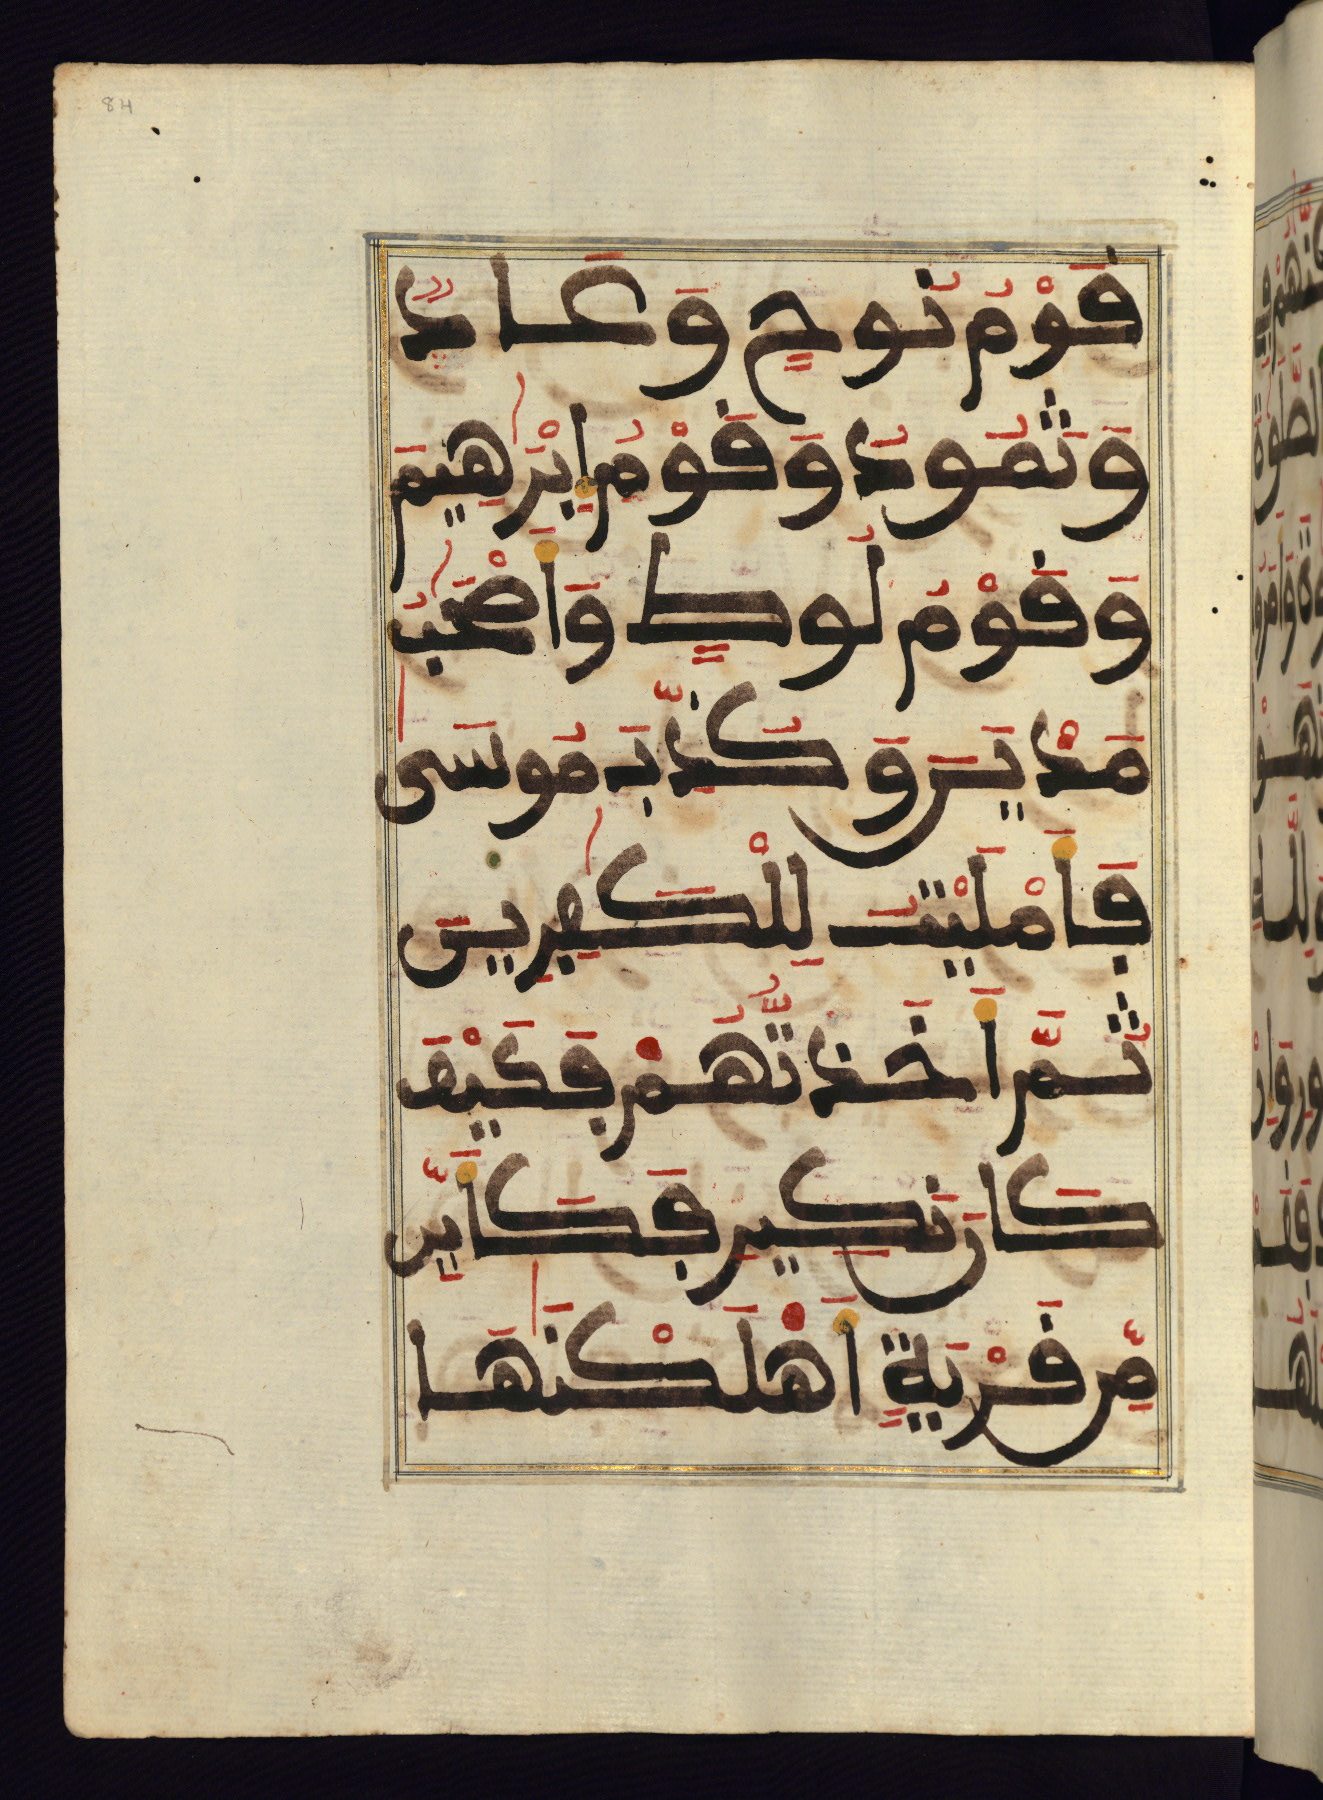 84
قَوْمُ نُوحٍ وَعَادٌ
وَثَمُودُ وَقَوْمُ إِبْرَٰهِيمَ
وَقَوْمُ لُوطٍ وَأَصْحَٰبُ
مَدْيَنَ وَكُذِّبَ مُوسَىٰ
فَأَمْلَيْتُ لِلْكَٰفِرِينَ
ثُمَّ أَخَذتُّهُمْ فَكَيْفَ
كَانَ نَكِيرِ فَكَأَيِّن
مِّن قَرْيَةٍ أَهْلَكْنَٰهَا